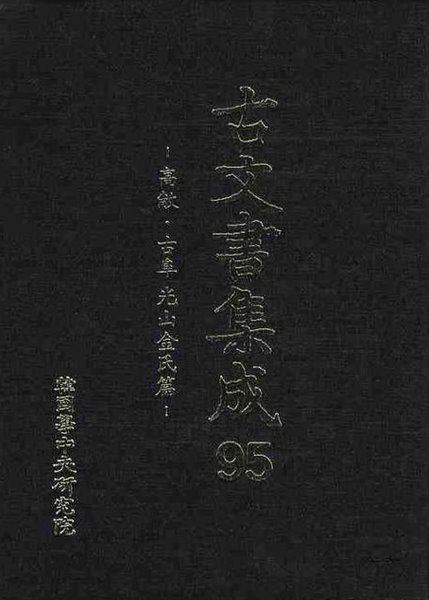 古文書集成 95
-高敞·古阜 光山金氏篇-
韓國學中央研究院